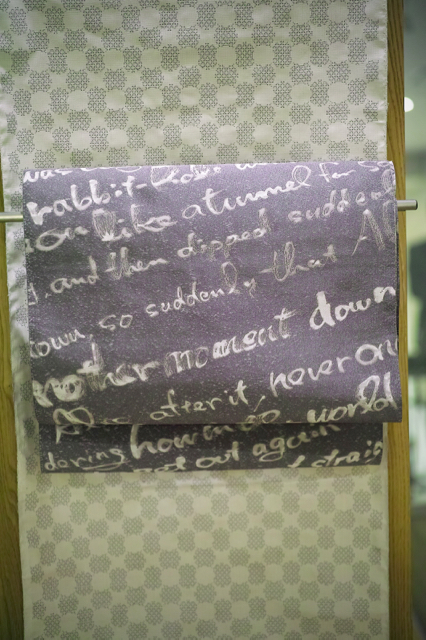 was
rabbit-hole w
on like a tunnel for s
, and then dipped sudden
down, so suddenly that Al
nother moment down
after it, never on
how in
world
daring
get out again
strai